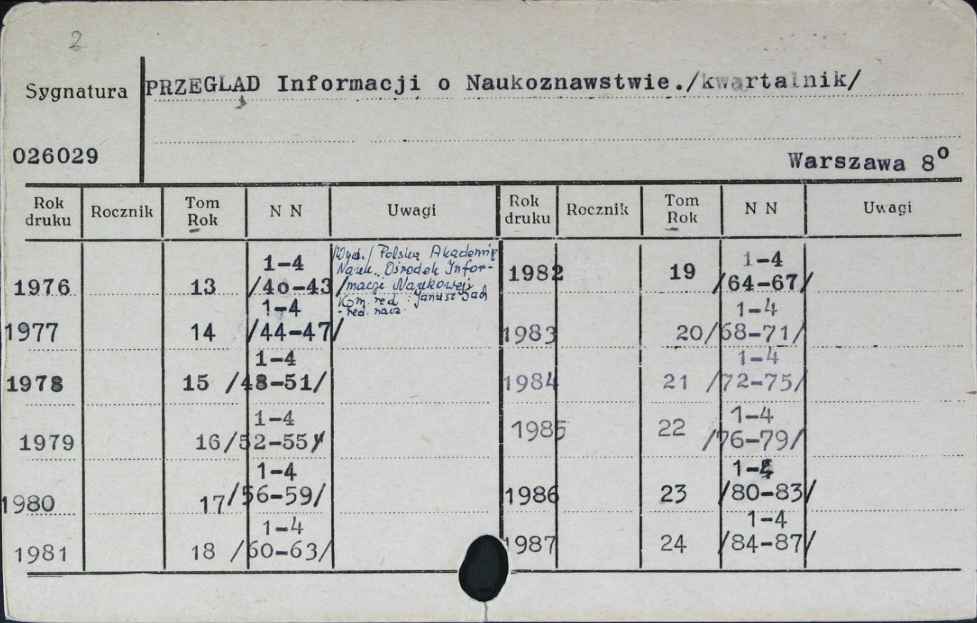 2
Sygnatura
PRZEGLĄD Informacji o Naukoznawstwie./kwartalnik/
026029
Warszawa 8⁰
Rok druku Rocznik Tom Rok N N Uwagi Rok druku Rocznik Tom Rok N N Uwagi
1976 13 1-4 /40-43/
Wyd./ Polska Akademia
Nauk. Ośrodek Infor-
macji Naukowej
Kom. red. : Janusz Sach
- red. nacz.
1977 14 1-4 /44-47/
1978 15 1-4 /48-51/
1979 16 1-4 /52-55/
1980 17 1-4 /56-59/
1981 18 1-4 /60-63/
1982 19 1-4 /64-67/
1983 20 1-4 /68-71/
1984 21 1-4 /72-75/
1985 22 1-4 /76-79/
1986 23 1-4 /80-83/
1987 24 1-4 /84-87/